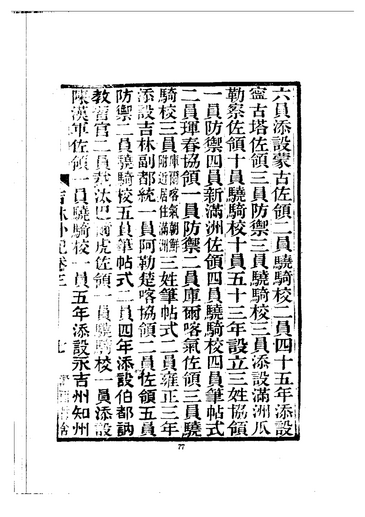 六員添設蒙古佐領二員驍騎校二員四十五年添設
寧古塔佐領三員防禦三員驍騎校三員添設滿洲瓜
勒察佐領十員驍騎校十員五十三年設立三姓協領
一員防禦四員新滿洲佐領四員驍騎校四員筆帖式
二員琿春協領一員防禦二員庫爾喀氣佐領三員驍
騎校三員庫爾喀氣朝鮮附近居住滿洲三姓筆帖式二員雍正三年
添設吉林副都統一員阿勒楚喀協領二員佐領五員
防禦二員驍騎校五員筆帖式二員四年添設伯都訥
教習官二員巴爾虎佐領一員驍騎校一員添設
陳漢軍佐領一員驍騎校一員五年添設永吉州知州
吉林外記卷三
七
77